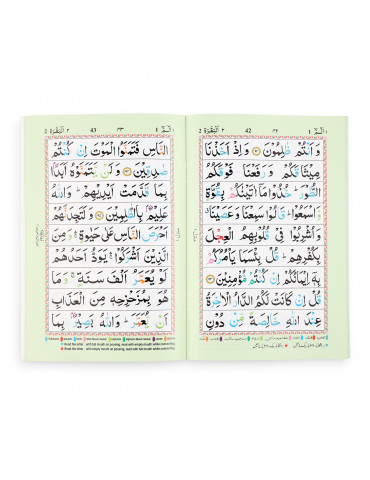 الٓمّٓ ١ 42 البقرة ٢
وَاَنْتُمْ ظٰلِمُوْنَ ۝ وَاِذْ اَخَذْنَا
مِيْثَاقَكُمْ وَرَفَعْنَا فَوْقَكُمُ
الطُّوْرَ ؕ خُذُوْا مَاۤ اٰتَيْنٰكُمْ بِقُوَّةٍ
وَّاسْمَعُوْا ؕ قَالُوْا سَمِعْنَا وَعَصَيْنَا ۗ
وَاُشْرِبُوْا فِيْ قُلُوْبِهِمُ الْعِجْلَ
بِكُفْرِهِمْ ؕ قُلْ بِئْسَمَا يَاْمُرُكُمْ
بِهٖۤ اِيْمَانُكُمْ اِنْ كُنْتُمْ مُّؤْمِنِيْنَ ۝
قُلْ اِنْ كَانَتْ لَكُمُ الدَّارُ الْاٰخِرَةُ
عِنْدَ اللّٰهِ خَالِصَةً مِّنْ دُوْنِ
الٓمّٓ ١ 43 البقرة ٢
النَّاسِ فَتَمَنَّوُا الْمَوْتَ اِنْ كُنْتُمْ
صٰدِقِيْنَ ۝ وَلَنْ يَّتَمَنَّوْهُ اَبَدًاۢ
بِمَا قَدَّمَتْ اَيْدِيْهِمْ ؕ وَاللّٰهُ
عَلِيْمٌۢ بِالظّٰلِمِيْنَ ۝ وَلَتَجِدَنَّهُمْ
اَحْرَصَ النَّاسِ عَلٰى حَيٰوةٍ ۛ وَمِنَ
الَّذِيْنَ اَشْرَكُوْا ۛ يَوَدُّ اَحَدُهُمْ
لَوْ يُعَمَّرُ اَلْفَ سَنَةٍ ۚ وَمَا
هُوَ بِمُزَحْزِحِهٖ مِنَ الْعَذَابِ
اَنْ يُّعَمَّرَ ؕ وَاللّٰهُ بَصِيْرٌۢ بِمَا